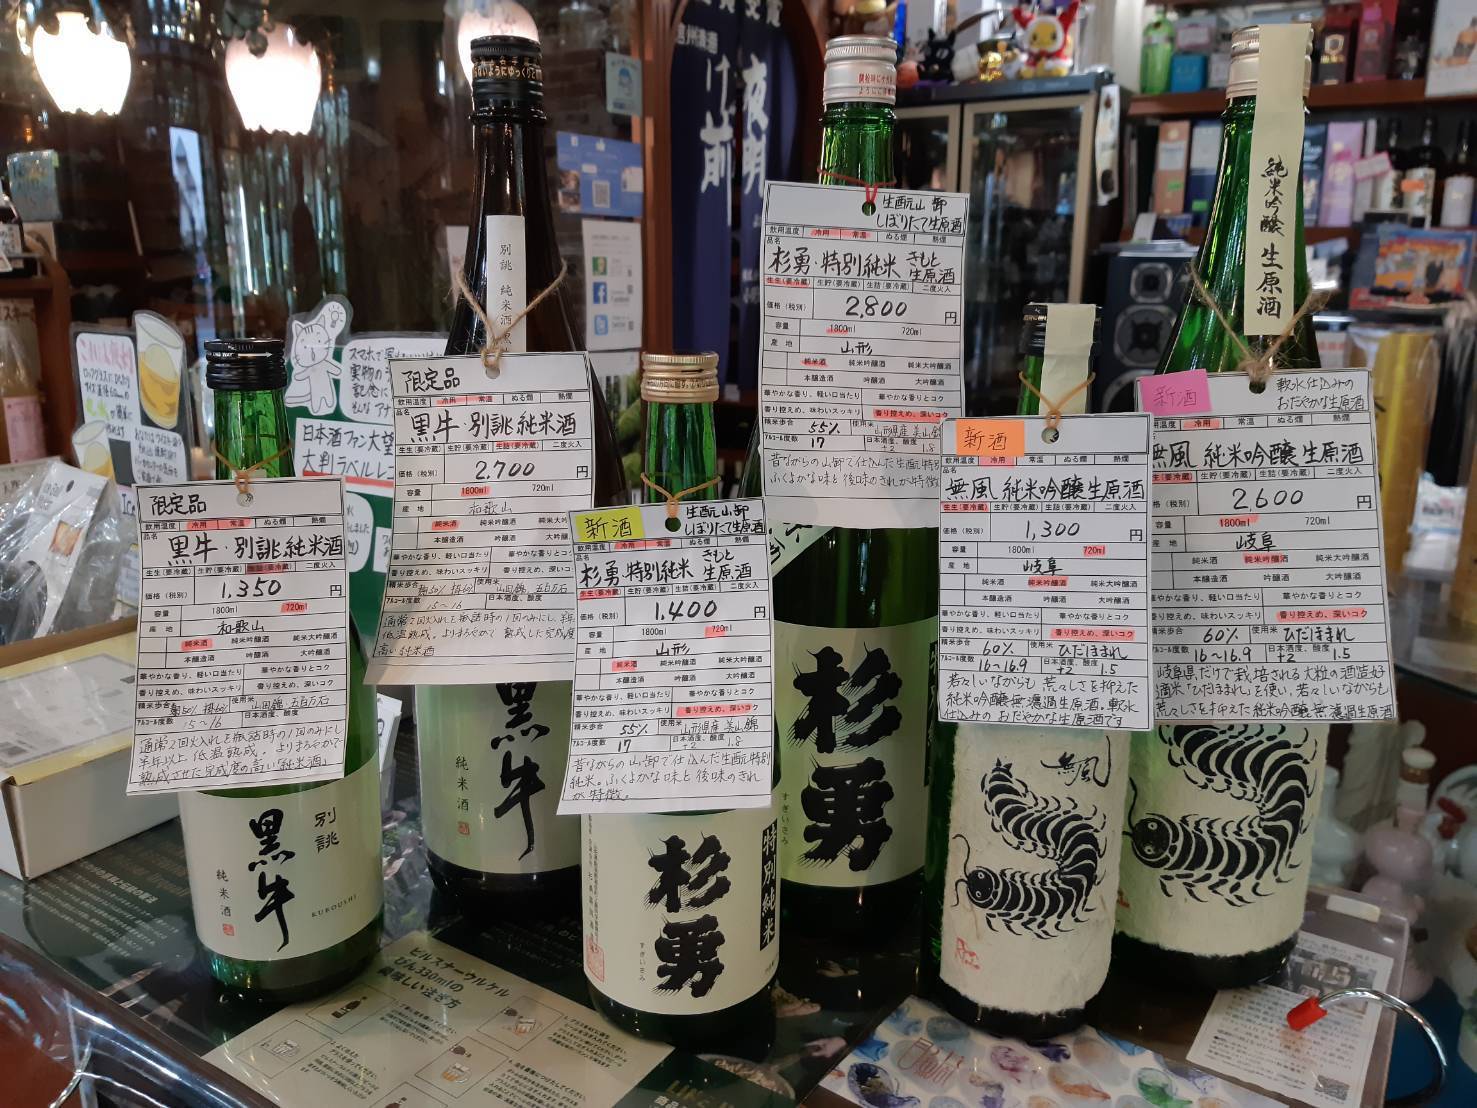 夜明け前
純米吟醸 生原酒
別誂 純米酒
限定品
飲用温度 冷用 常温 ぬる燗 熱燗
品名
黒牛・別誂純米酒
生生(要冷蔵) 生貯(要冷蔵) 生詰(要冷蔵) 二度火入
価格(税別) 1,350 円
容量 1800ml 720ml
産地 和歌山
純米酒 純米吟醸酒 純米大吟醸酒
本醸造酒 吟醸酒 大吟醸酒
華やかな香り、軽い口当たり 華やかな香りとコク
香り控えめ、味わいスッキリ 香り控えめ、深いコク
精米歩合 麹50% 掛60% 使用米 山田錦、五百万石
アルコール度数 15~16 日本酒度、酸度
通常2回火入れを瓶詰時の1回のみにし
半年以上、低温熟成。よりまろやかで
熟成させた完成度の高い純米酒」
限定品
飲用温度 冷用 常温 ぬる燗 熱燗
品名
黒牛・別誂純米酒
生生(要冷蔵) 生貯(要冷蔵) 生詰(要冷蔵) 二度火入
価格(税別) 2,700 円
容量 1800ml 720ml
産地 和歌山
純米酒 純米吟醸酒
本醸造酒 吟醸酒 大吟醸酒
華やかな香り、軽い口当たり 華やかな香りとコク
香り控えめ、味わいスッキリ
精米歩合 麹50% 掛60% 使用米 山田錦 五百万石
アルコール度数 15~16 日本酒度、酸度
通常2回火入れを瓶詰時の1回のみにし、半年
低温熟成。よりまろやかで熟成した完成度
高い純米酒
新酒
生酛山卸
しぼりたて生原酒
飲用温度 冷用 常温 ぬる燗 熱燗
品名
杉勇・特別純米 きもと 生原酒
生生(要冷蔵) 生貯(要冷蔵) 生詰(要冷蔵) 二度火入
価格(税別) 1,400 円
容量 1800ml 720ml
産地 山形
純米酒 純米吟醸酒 純米大吟醸酒
本醸造酒 吟醸酒 大吟醸酒
華やかな香り、軽い口当たり 華やかな香りとコク
香り控えめ、味わいスッキリ 香り控えめ、深いコク
精米歩合 55% 使用米 山形県産 美山錦
アルコール度数 17 日本酒度、酸度 +2 1.8
昔ながらの山卸で仕込んだ生酛特別
純米。ふくよかな味と後味のきれ
が特徴。
生酛山卸
しぼりたて生原酒
飲用温度 冷用 常温 ぬる燗 熱燗
品名
杉勇・特別純米 きもと 生原酒
生生(要冷蔵) 生貯(要冷蔵) 生詰(要冷蔵) 二度火入
価格(税別) 2,800 円
容量 1800ml 720ml
産地 山形
純米酒 純米吟醸酒 純米大吟醸酒
本醸造酒 吟醸酒 大吟醸酒
華やかな香り、軽い口当たり 華やかな香りとコク
香り控えめ、味わいスッキリ 香り控えめ、深いコク
精米歩合 55% 使用米 山形県産 美山錦
アルコール度数 17 日本酒度、酸度
昔ながらの山卸で仕込んだ生酛特別
ふくよかな味と後味のきれが特徴
新酒
飲用温度 冷用 常温 ぬる燗 熱燗
品名
無風 純米吟醸生原酒
生生(要冷蔵) 生貯(要冷蔵) 生詰(要冷蔵) 二度火入
価格(税別) 1,300 円
容量 1800ml 720ml
産地 岐阜
純米酒 純米吟醸酒 純米大吟醸酒
本醸造酒 吟醸酒 大吟醸酒
華やかな香り、軽い口当たり 華やかな香りとコク
香り控えめ、味わいスッキリ 香り控えめ、深いコク
精米歩合 60% 使用米 ひだほまれ
アルコール度数 16~16.9 日本酒度、酸度 +2 1.5
若々しいながらも荒々しさを抑えた
純米吟醸無濾過生原酒。軟水
仕込みのおだやかな生原酒です
新酒
軟水仕込みの
おだやかな生原酒
飲用温度 冷用 常温 ぬる燗 熱燗
無風 純米吟醸生原酒
生生(要冷蔵) 生貯(要冷蔵) 生詰(要冷蔵) 二度火入
価格(税別) 2,600 円
容量 1800ml 720ml
産地 岐阜
純米酒 純米吟醸酒 純米大吟醸酒
本醸造酒 吟醸酒 大吟醸酒
華やかな香り、軽い口当たり 華やかな香りとコク
香り控えめ、味わいスッキリ 香り控えめ、深いコク
精米歩合 60% 使用米 ひだほまれ
アルコール度数 16~16.9 日本酒度、酸度 +2 1.5
岐阜県だけで栽培される大粒の酒造好
適米「ひだほまれ」を使い、若々しいながらも
荒々しさを抑えた純米吟醸無濾過生原酒
別誂
黒牛
純米酒
KUROUSHI
黒牛
純米酒
特別純米
杉勇
すぎいさみ
杉勇
すぎいさみ
無風
日本酒ファン大望
大判ラベルレ
ピルスナーウルケル
びん330mlの
美味しい注ぎ方